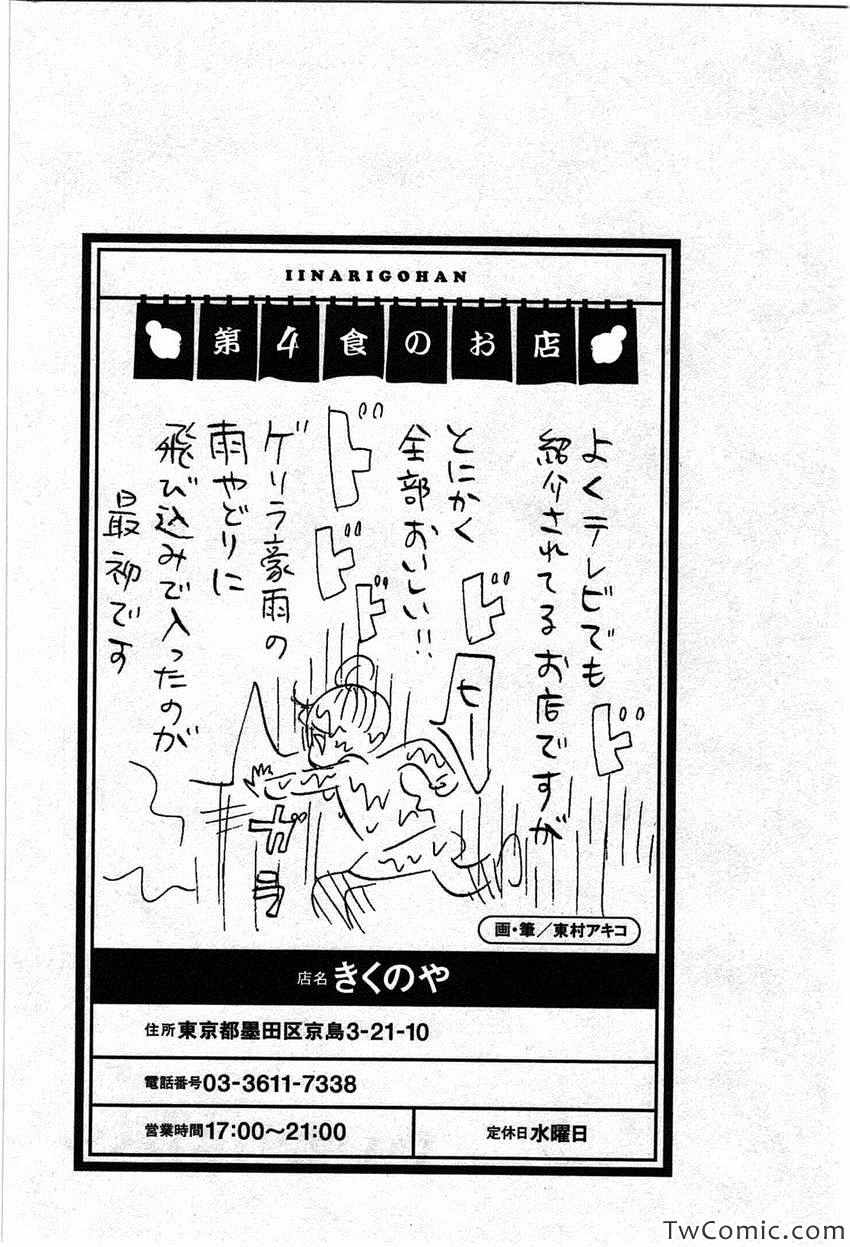 IINARIGOHAN
第4食のお店
よくテレビでも
紹介されてるお店ですが
とにかく
全部おいしい!!
ゲリラ豪雨の
雨やどりに
飛び込みで入ったのが
最初です
ド
ド
ド
ド
ド
ヒー
ガラ
画・筆/東村アキコ
店名 きくのや
住所 東京都墨田区京島3-21-10
電話番号 03-3611-7338
営業時間 17:00〜21:00
定休日 水曜日
TwComic.com